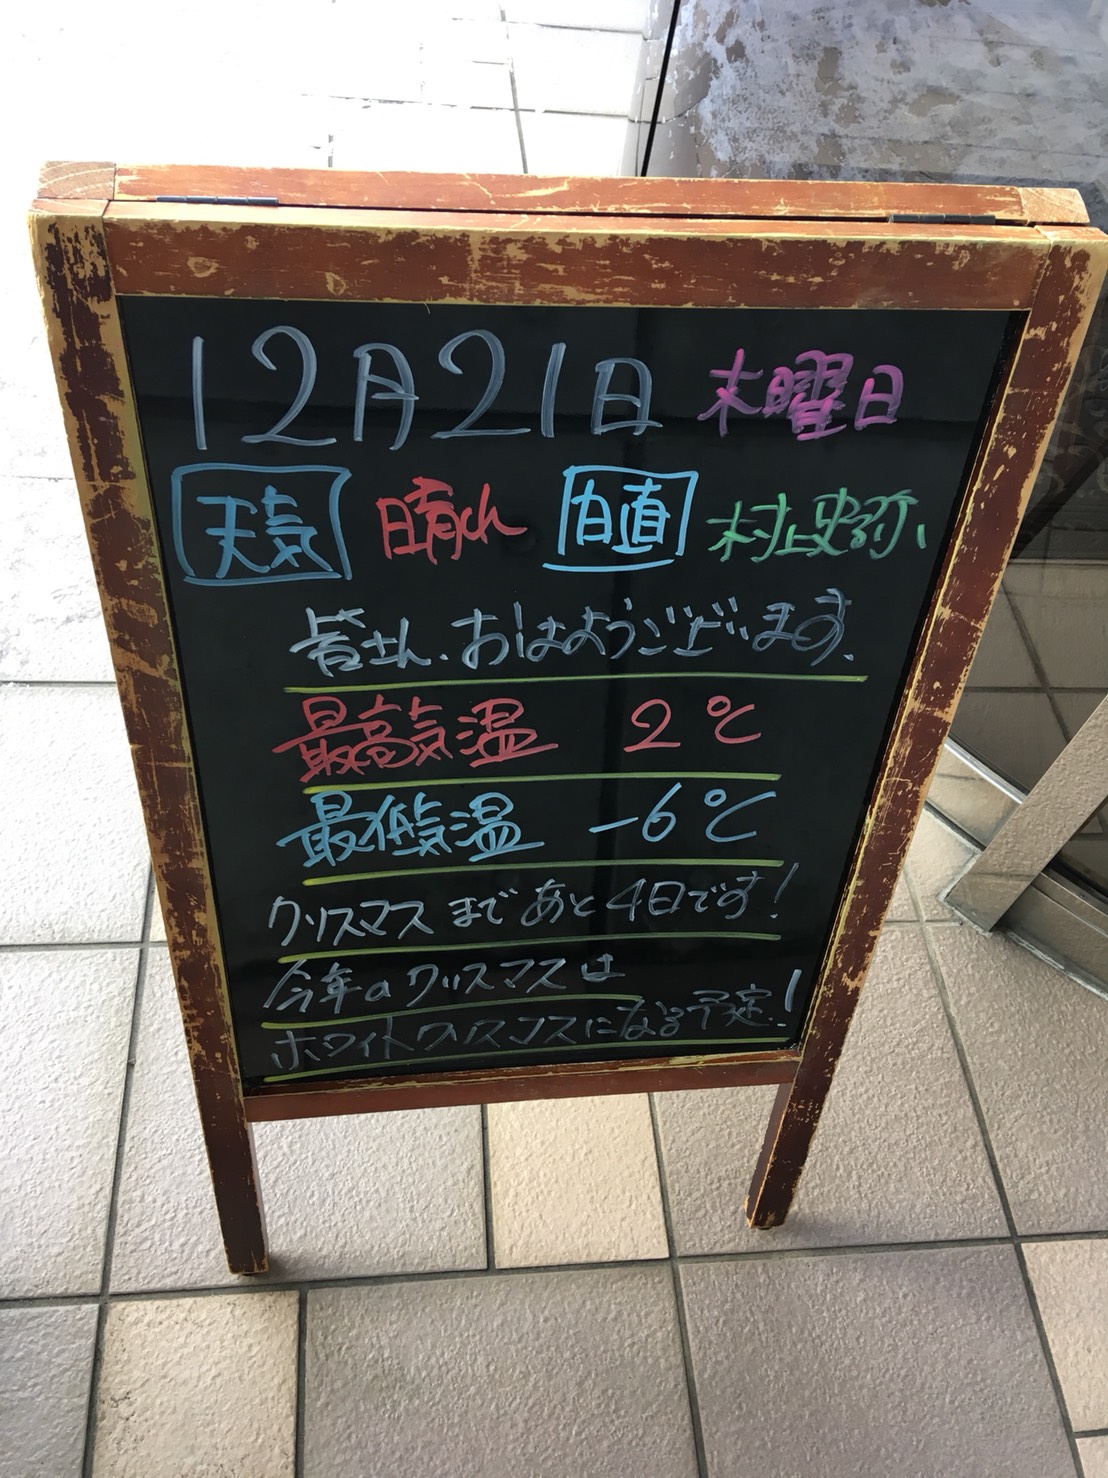 12月21日 木曜日
天気 晴れ 日直 村上史弥
皆さん、おはようございます。
最高気温 2℃
最低気温 -6℃
クリスマスまであと4日です!
今年のクリスマスは
ホワイトクリスマスになる予定!